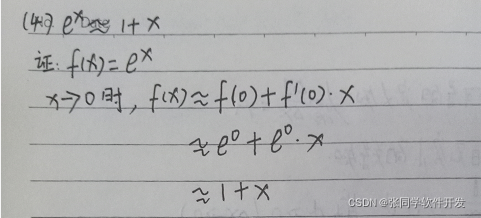 (4) eˣ ≈ 1+x
证: f(x) = eˣ
x→0 时, f(x) ≈ f(0) + f'(0)·x
≈ e⁰ + e⁰·x
≈ 1+x
CSDN @张同学软件开发